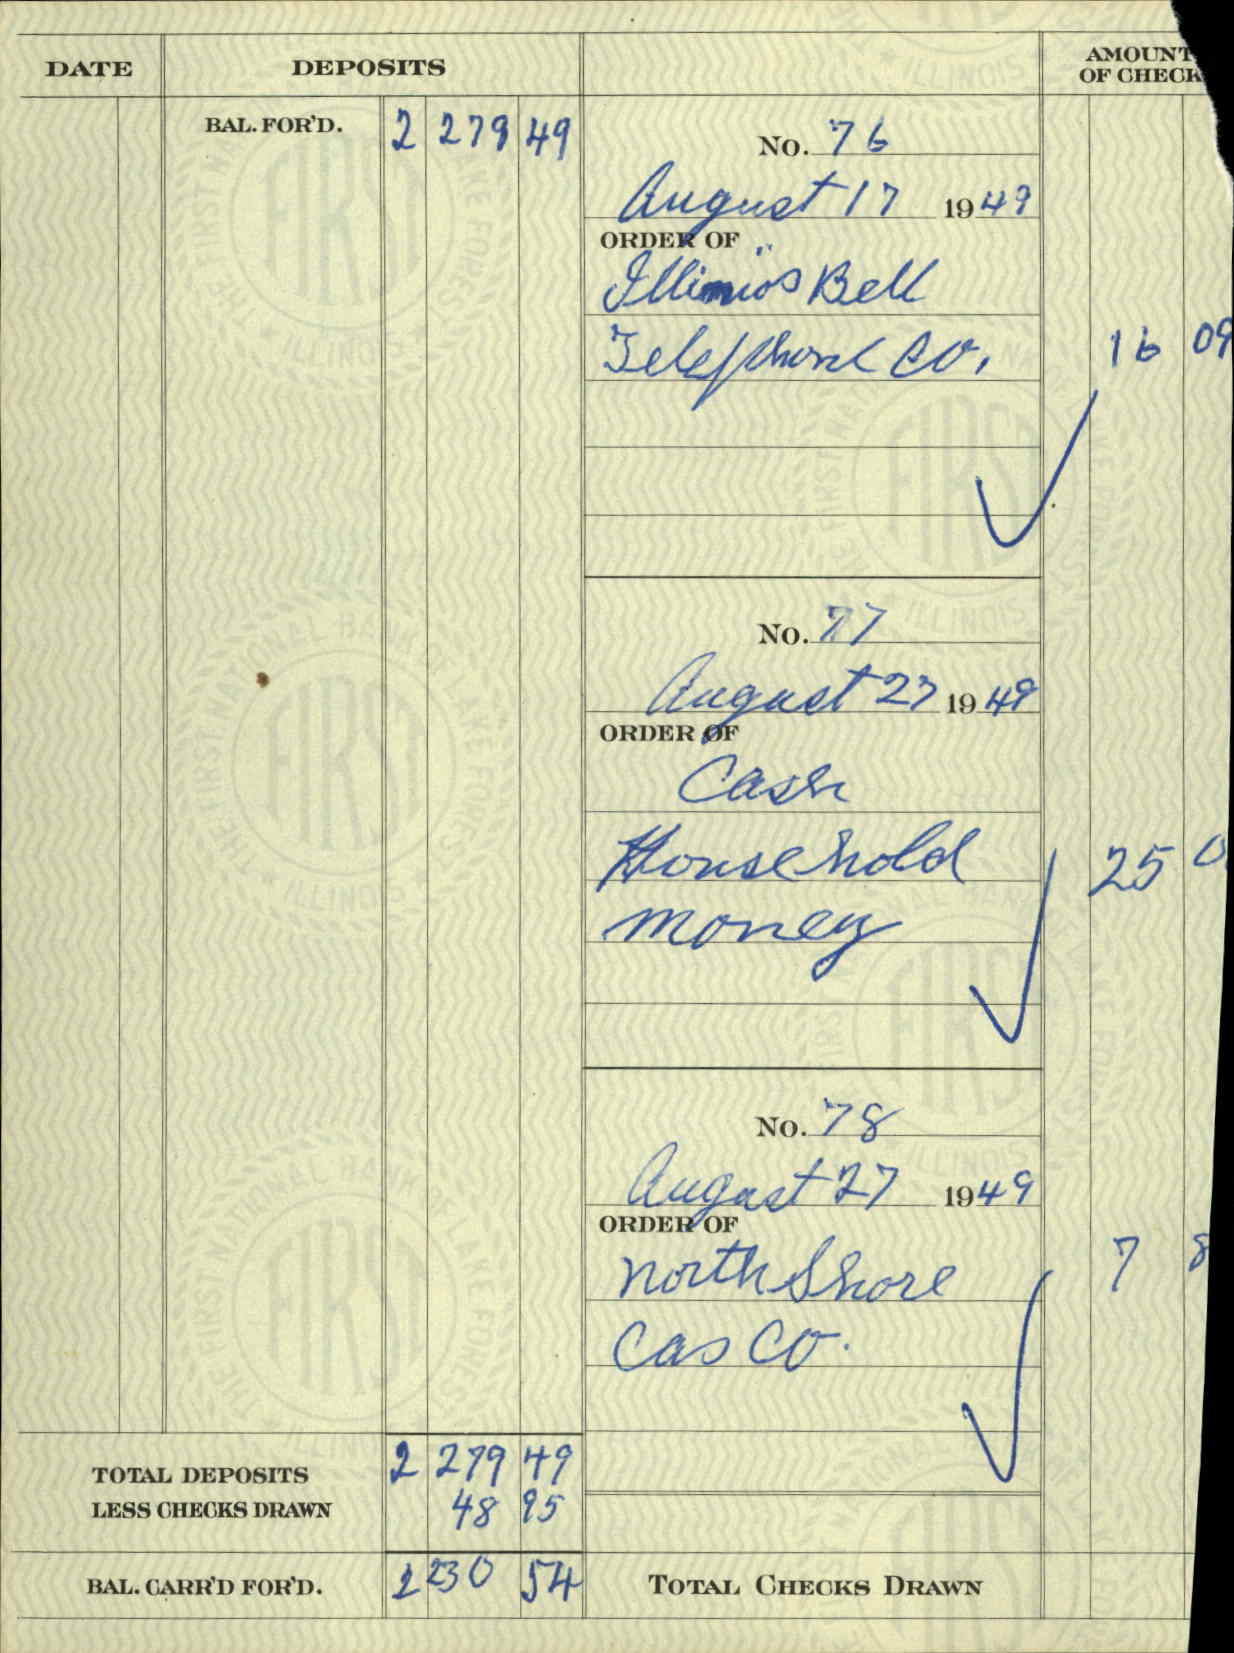 DATE DEPOSITS AMOUNT OF CHECK
BAL. FOR'D. 2 279 49
No. 76
August 17 1949
ORDER OF
Illinios Bell
Telephone Co. 16 09
No. 77
August 27 1949
ORDER OF
Cash
Household 25
money
No. 78
August 27 1949
ORDER OF
North Shore 7 8
Gas Co.
TOTAL DEPOSITS 2 279 49
LESS CHECKS DRAWN 48 95
BAL. CARR'D FOR'D. 2 230 54 TOTAL CHECKS DRAWN